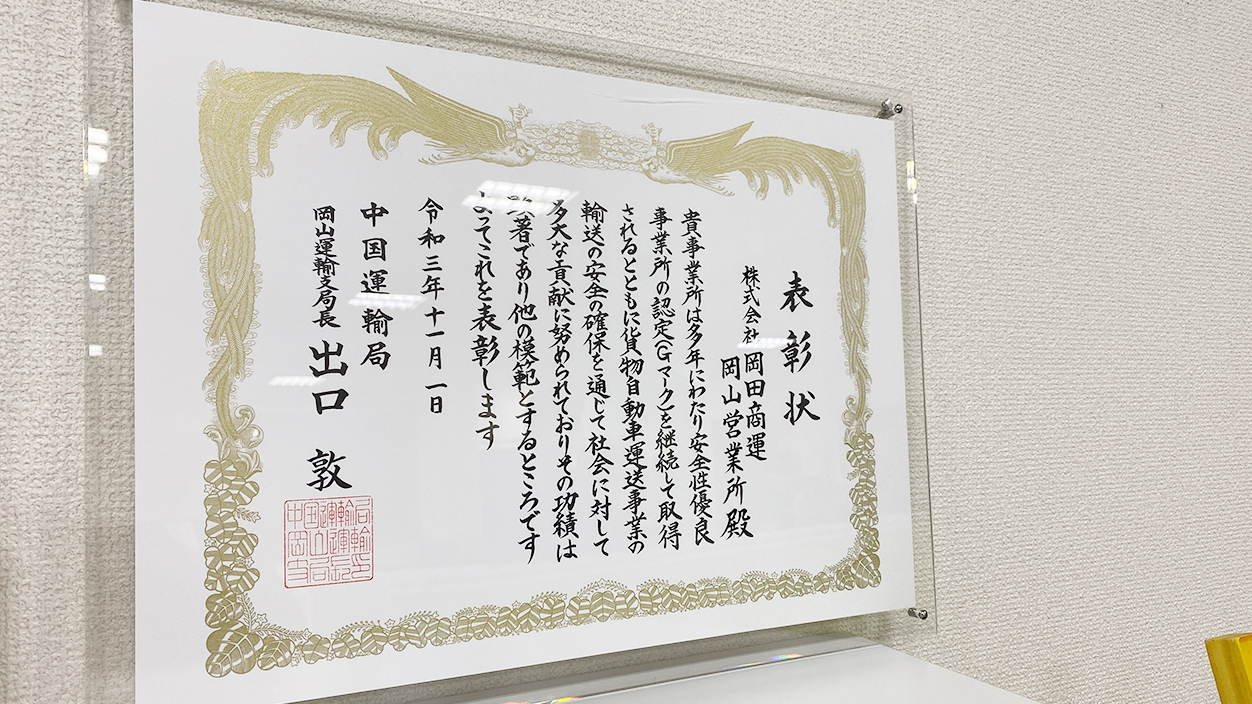 表彰状
株式会社 岡田商運
岡山営業所 殿
貴事業所は多年にわたり安全性優良
事業所の認定(Gマーク)を継続して取得
されるとともに貨物自動車運送事業の
輸送の安全の確保を通じて社会に対して
多大な貢献に努められておりその功績は
顕著であり他の模範とするところです
よってこれを表彰します
令和三年十一月一日
中国運輸局
岡山運輸支局長 出口 敦